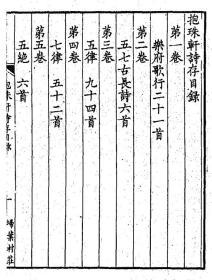 抱珠軒詩存目錄
第一卷
樂府歌行二十一首
第二卷
五七古長詩六首
第三卷
五律 九十四首
第四卷
七律 五十二首
第五卷
五絕 六首
抱珠軒詩存目錄
一
埽葉村莊